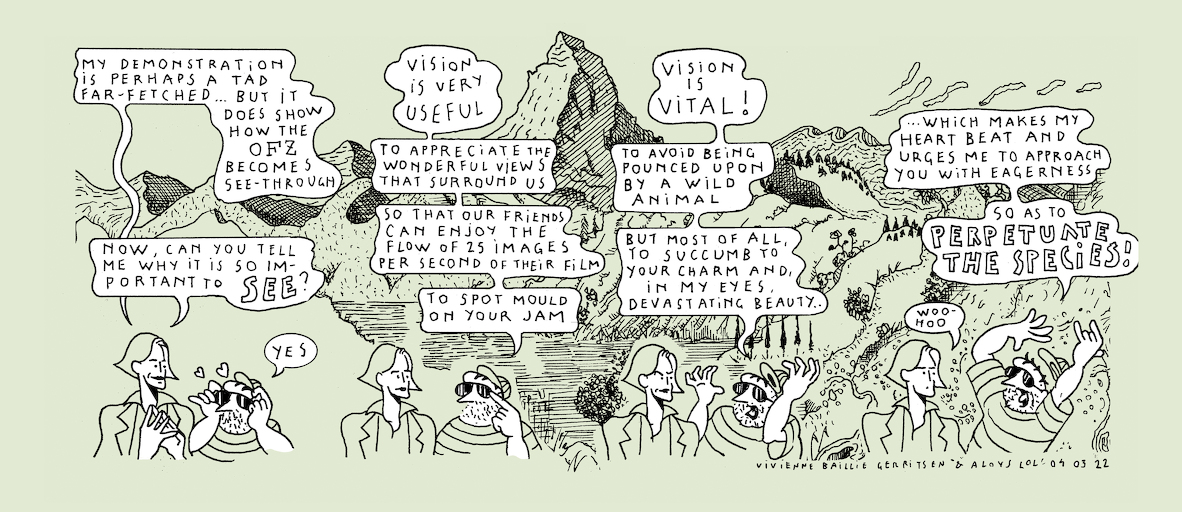 MY DEMONSTRATION
IS PERHAPS A TAD
FAR-FETCHED... BUT IT
DOES SHOW
HOW THE
OFZ
BECOMES
SEE-THROUGH
NOW, CAN YOU TELL
ME WHY IT IS SO IM-
PORTANT TO SEE?
YES
VISION
IS VERY
USEFUL
TO APPRECIATE THE
WONDERFUL VIEWS
THAT SURROUND US
SO THAT OUR FRIENDS
CAN ENJOY THE
FLOW OF 25 IMAGES
PER SECOND OF THEIR FILM
TO SPOT MOULD
ON YOUR JAM
VISION
IS
VITAL!
TO AVOID BEING
POUNCED UPON
BY A WILD
ANIMAL
BUT MOST OF ALL,
TO SUCCUMB TO
YOUR CHARM AND,
IN MY EYES,
DEVASTATING BEAUTY..
...WHICH MAKES MY
HEART BEAT AND
URGES ME TO APPROACH
YOU WITH EAGERNESS
SO AS TO
PERPETUATE
THE SPECIES!
WOO-
HOO
VIVIENNE BAILLIE GERRITSEN & ALOYS LOLO 04 03 22